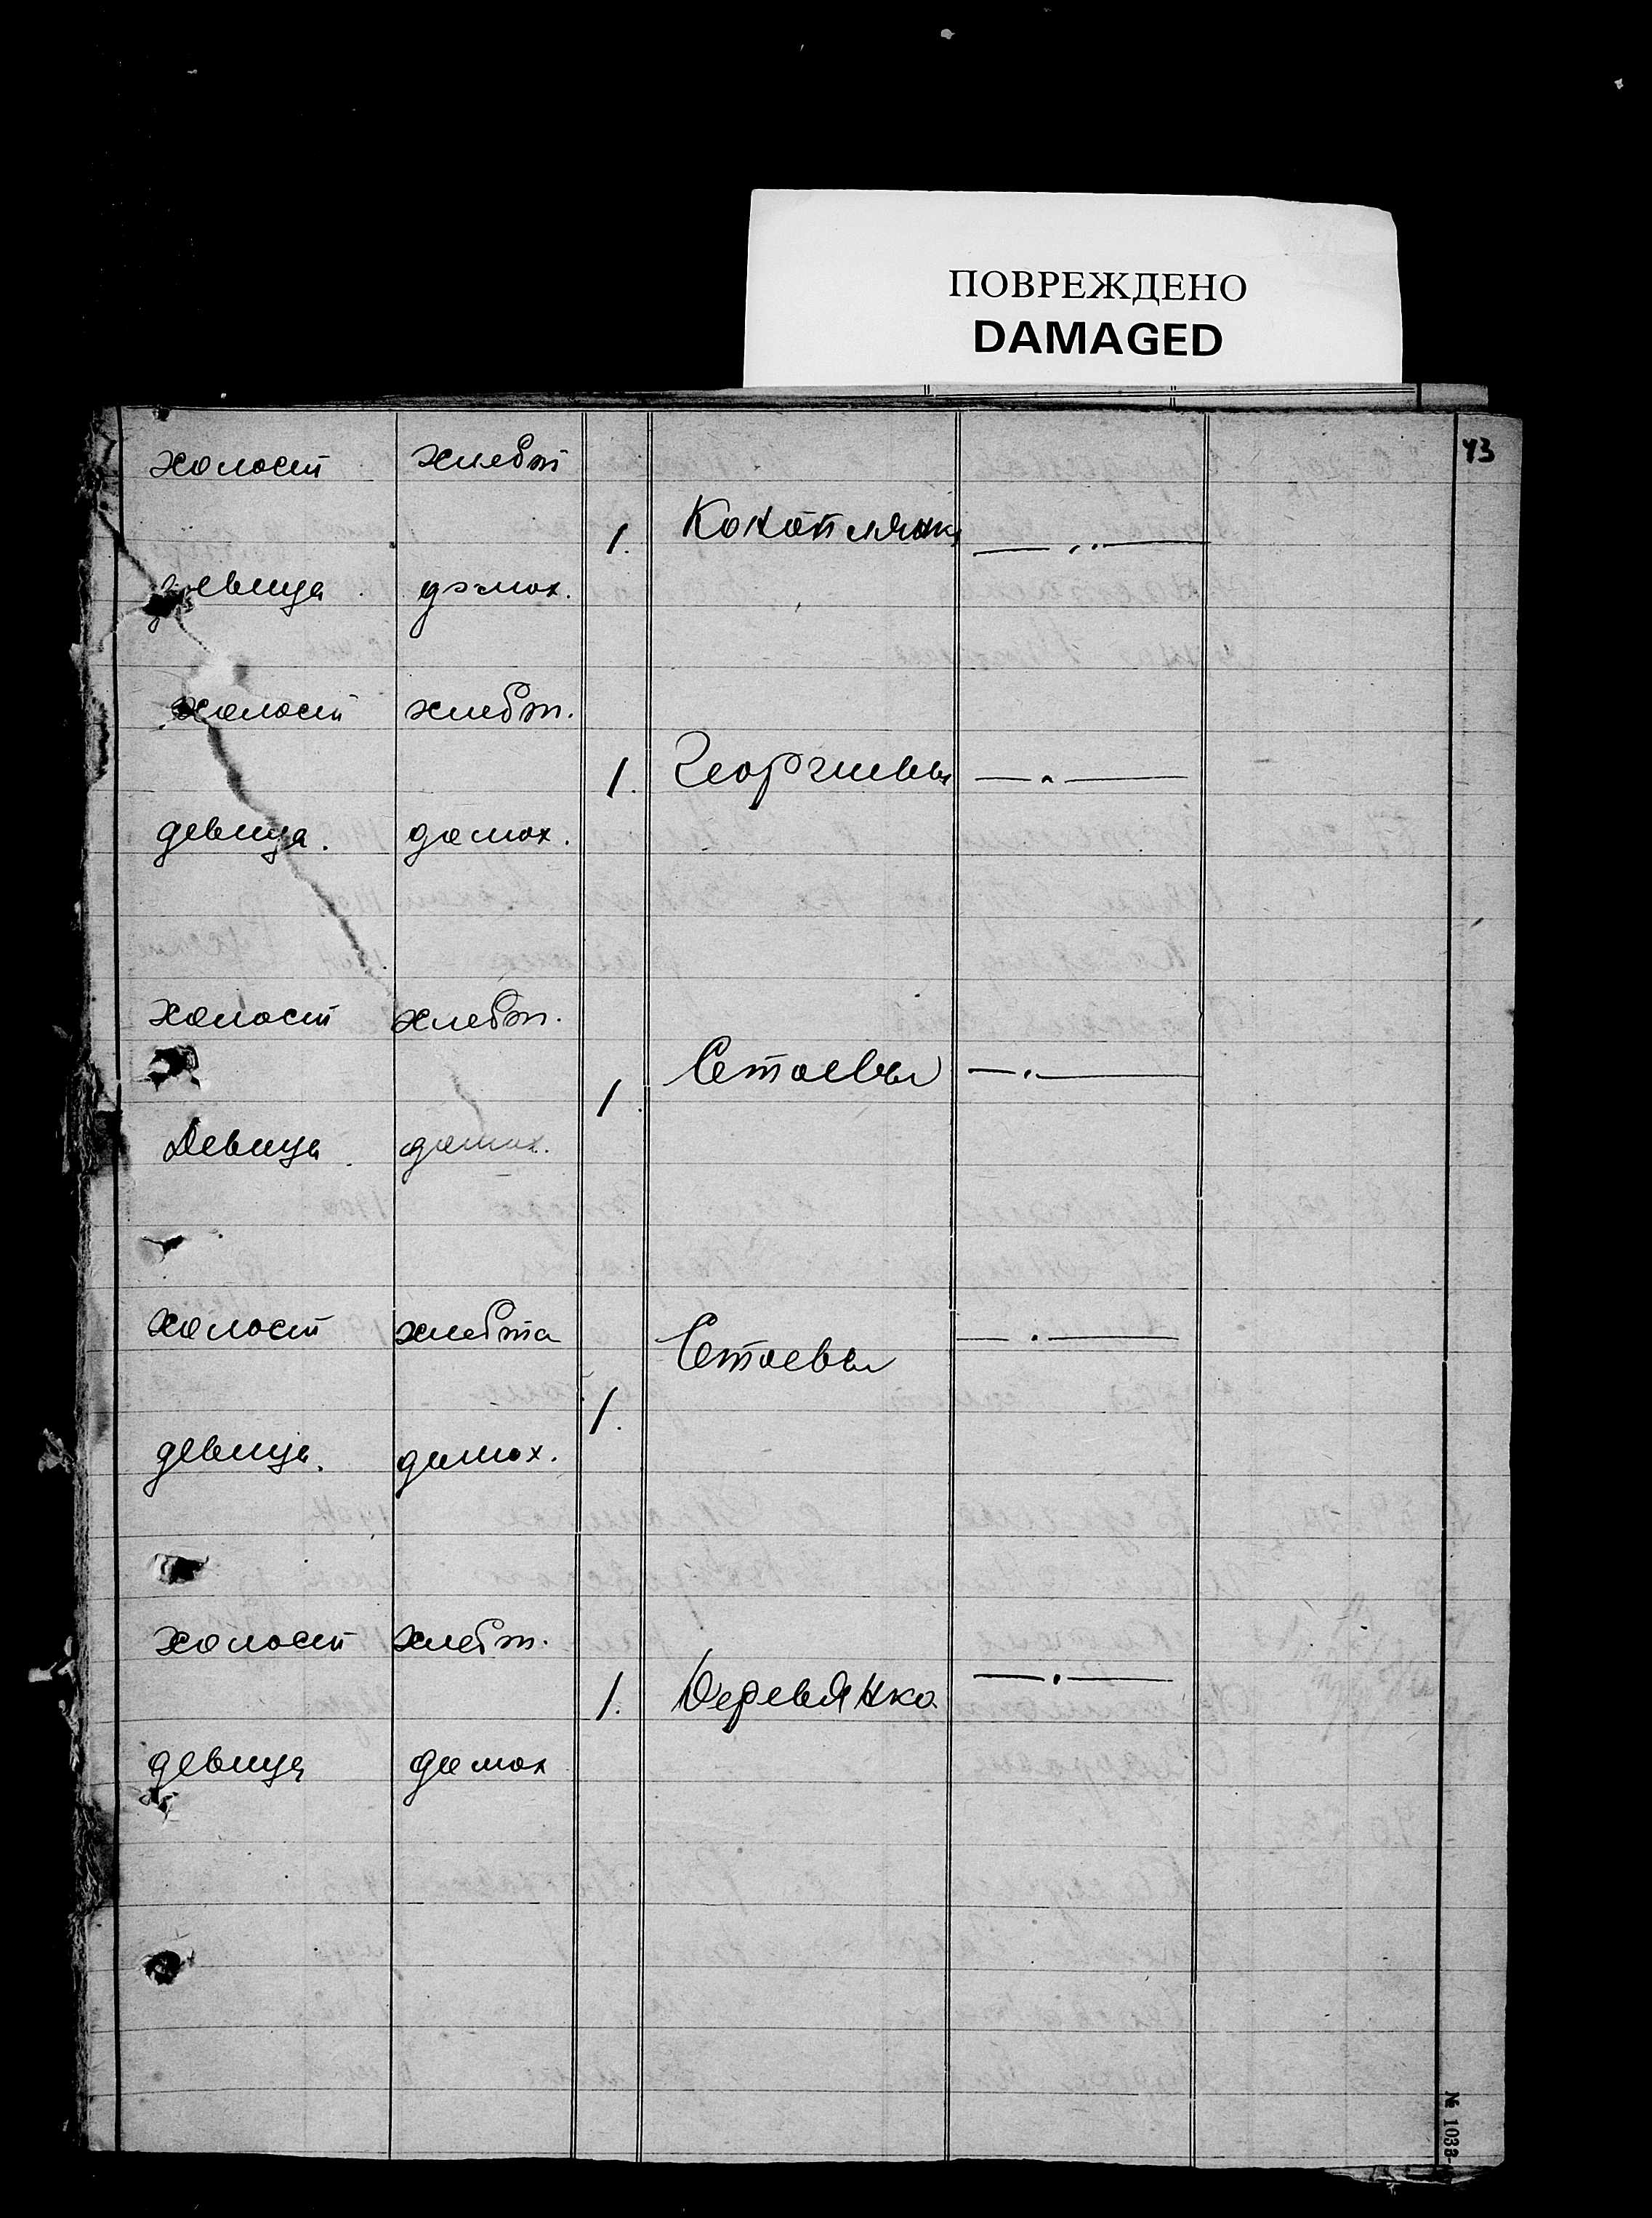 ПОВРЕЖДЕНО
DAMAGED
43
холост хлебт
1. Коноплянки —„—
девица домох.
холост хлебт.
1. Георгиевы —„—
девица. домох.
холост хлебт.
1. Сетоевы —„—
Девица. домох.
холост хлебта
Сетоевы —„—
1.
девица. домох.
холост хлебт.
1. Деревянко —„—
девица домох
№ 1033-